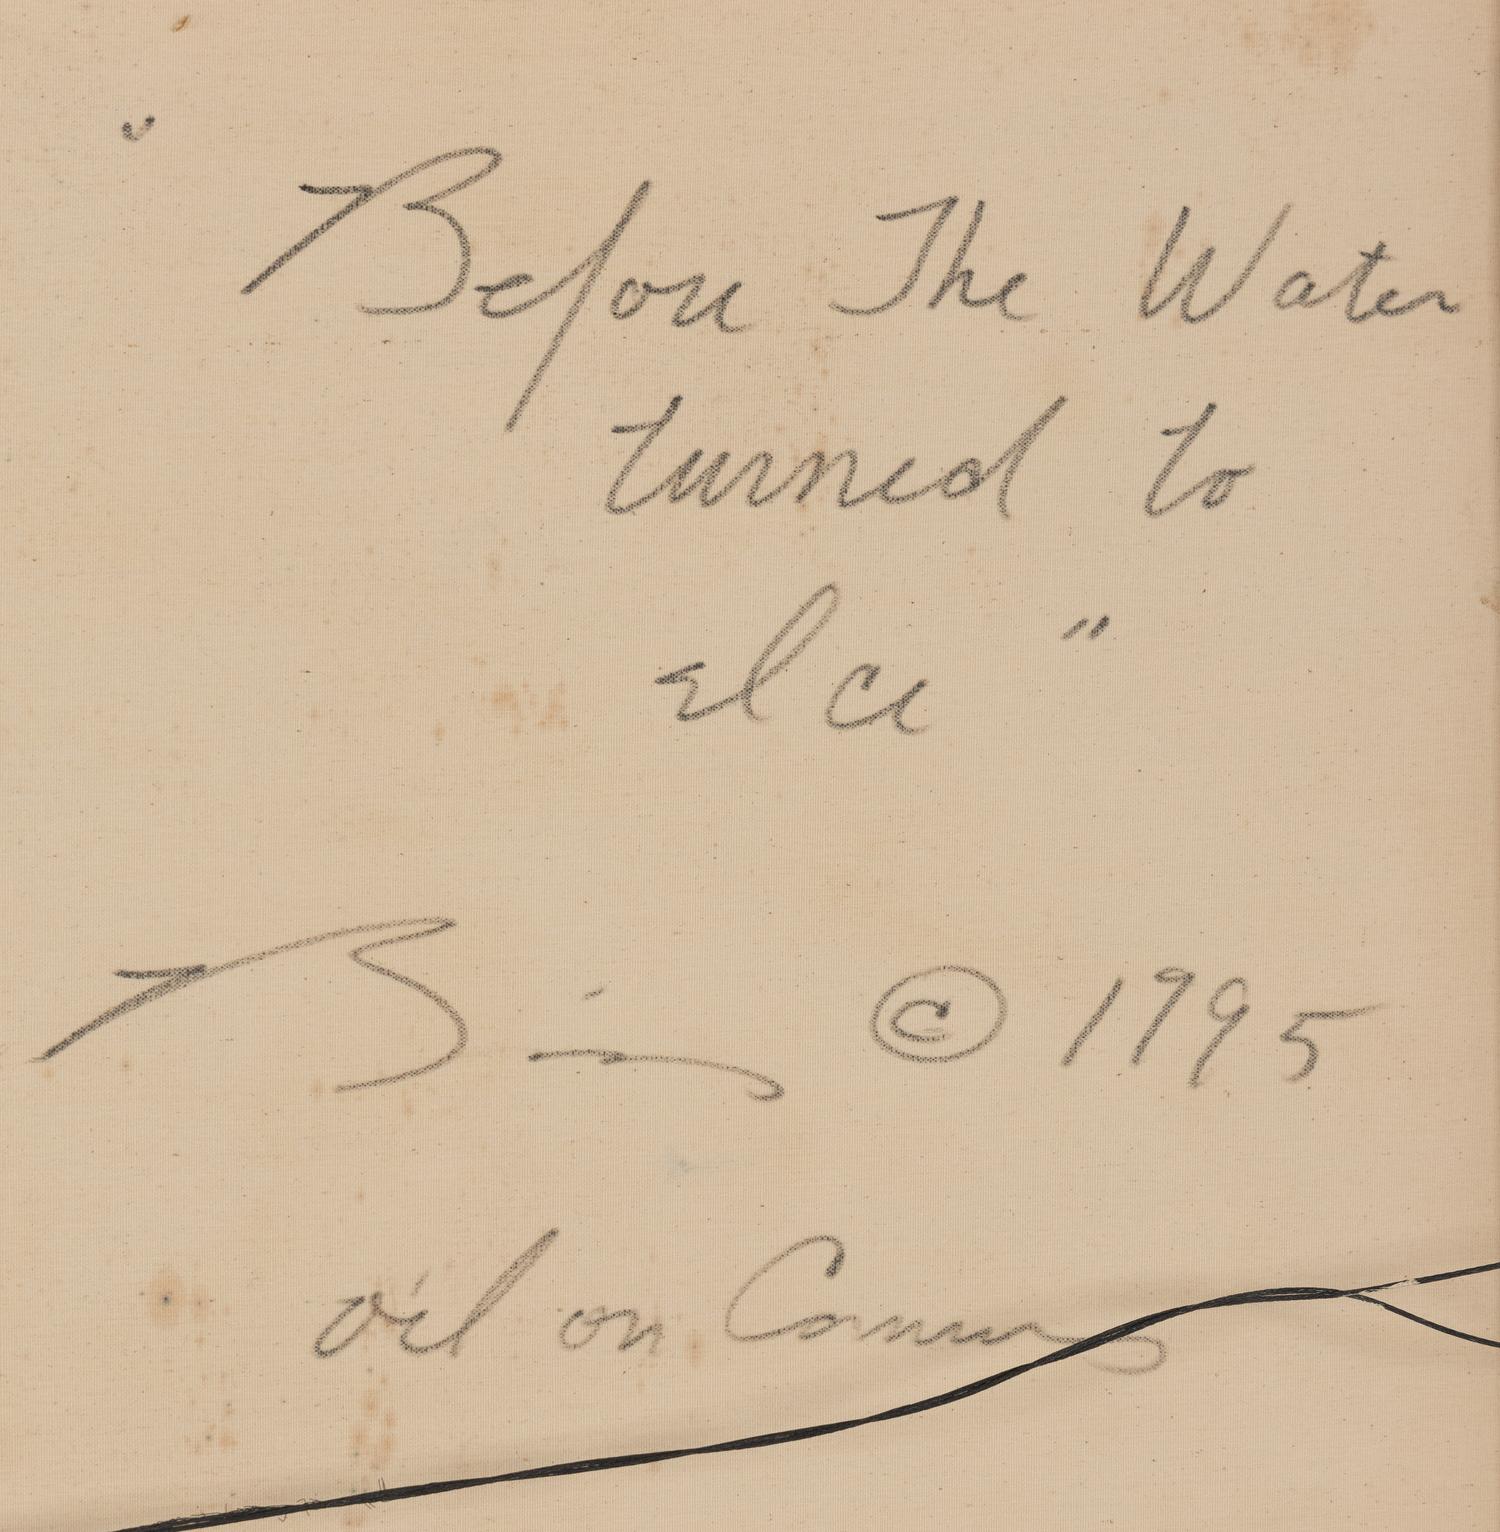 "Before The Water
turned to
elce"
© 1995
oil on Canvas